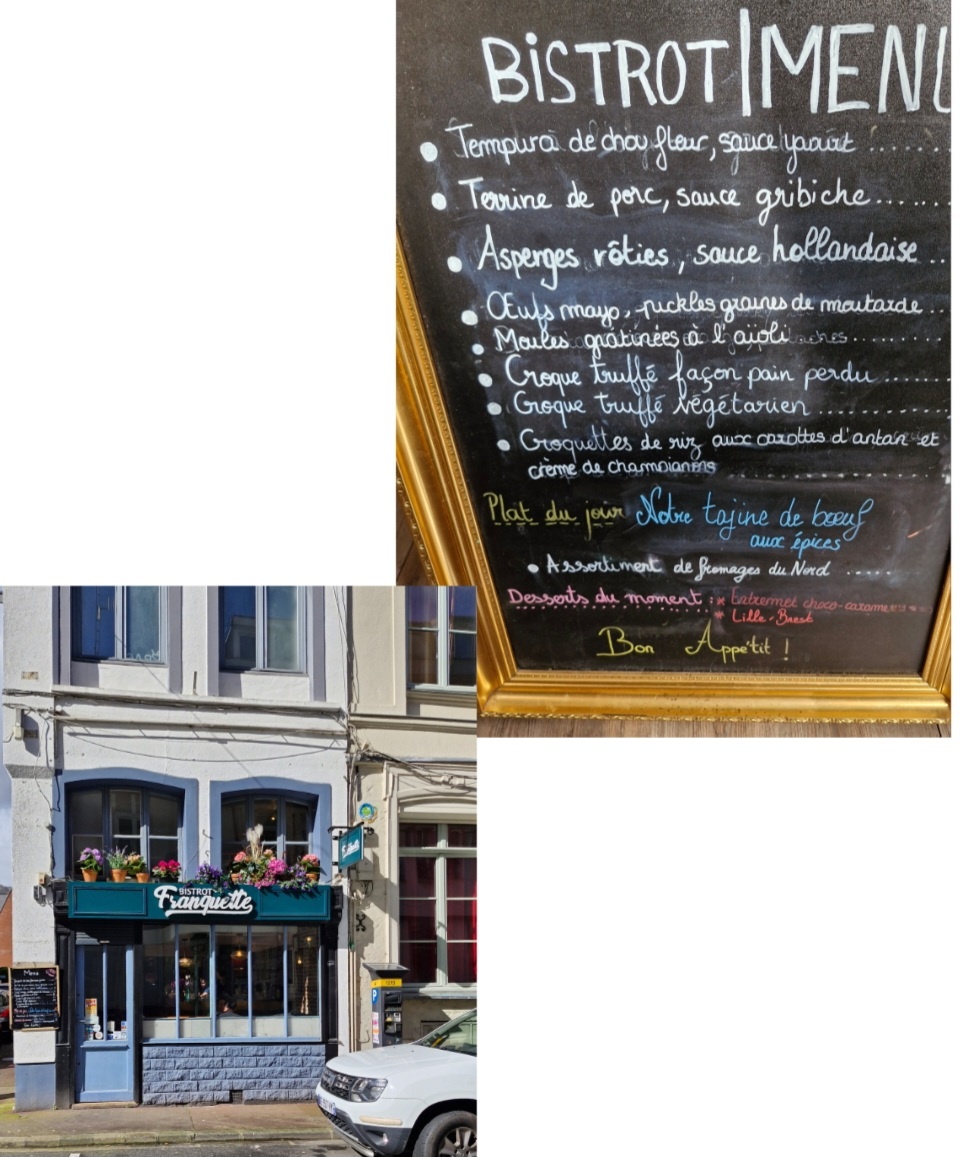 BiSTROT|MENU
• Tempura de chou fleur, sauce yaourt ......
• Terrine de porc, sauce gribiche.......
• Asperges rôties, sauce hollandaise ..
• Œufs mayo, puckles graines de moutarde ..
• Moules gratinées à l'aïoli ........
• Croque truffé façon pain perdu ......
• Croque truffé végétarien ............
• Croquettes de riz aux carottes d'antan et
crème de champignons ....................
Plat du jour Notre tajine de bœuf
aux épices
• Assortiment de fromages du Nord .....
Desserts du moment : * Entremet choco-caramel
* Lille-Brest
Bon Appétit !
BISTROT
Franquette
Menu